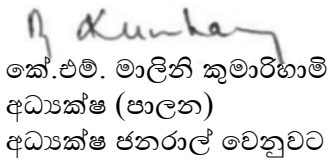 කේ.එම්. මාලිනි කුමාරිහාමි
අධ්‍යක්ෂ (පාලන)
අධ්‍යක්ෂ ජනරාල් වෙනුවට